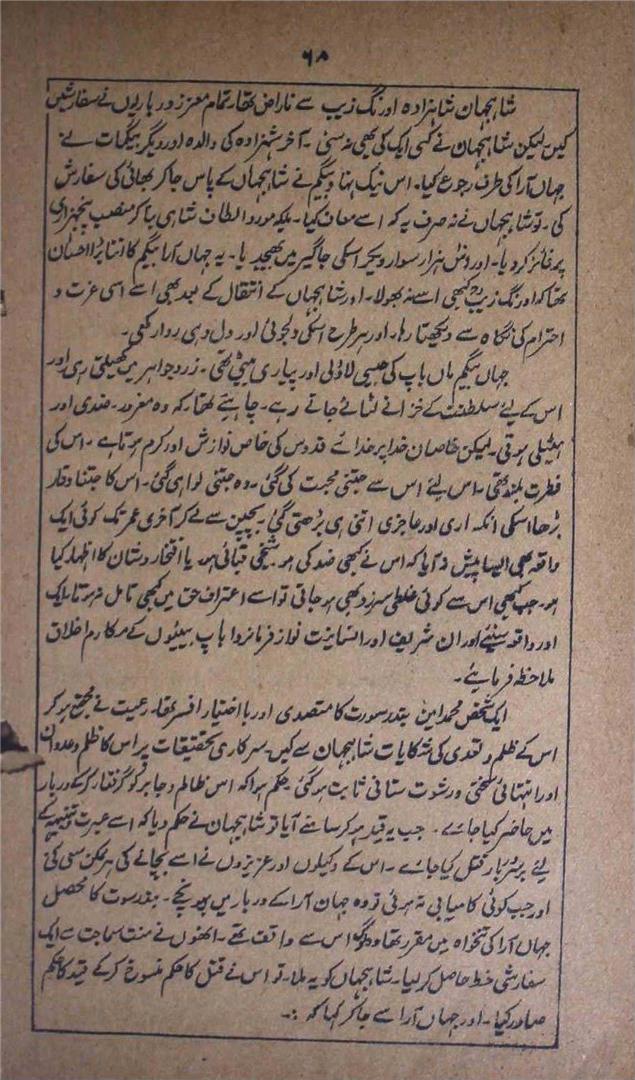 ۶۸
شاہجہان شاہزادہ اورنگ زیب سے ناراض تھا۔ تمام معزز درباریوں نے سفارشیں
کیں۔ لیکن شاہجہان نے کسی ایک کی بھی نہ سنی۔ آخر شہزادہ کی والدہ اور دیگر بیگمات نے
جہاں آرا کی طرف رجوع کیا۔ اس نیک نہاد بیگم نے شاہجہاں کے پاس جا کر بھائی کی سفارش
کی۔ تو شاہجہاں نے نہ صرف یہ کہ اسے معاف کیا۔ بلکہ مورد الطاف شاہی بنا کر منصب پنجہزاری
پر فائز کر دیا۔ اور دس ہزار سوار دیکر اسکی جاگیر میں بھیجدیا۔ یہ جہاں آرا بیگم کا اتنا بڑا احسان
تھا کہ اورنگ زیبؒ کبھی اسے نہ بھولا۔ اور شاہجہاں کے انتقال کے بعد بھی اسے اسی عزت و
احترام کی نگاہ سے دیکھتا رہا۔ اور ہر طرح اسکی دلجوئی اور دل دہی روا رکھی۔
جہاں بیگم ماں باپ کی جیسی لاڈلی اور پیاری بیٹی تھی۔ زر و جواہر میں کھیلتی رہی اور
اس کے لیے سلطنت کے خزانے لٹائے جاتے رہے۔ چاہیئے تھا کہ وہ مغرور۔ ضدی اور
ہٹیلی ہوتی۔ لیکن خاصان خدا پر خدائے قدوس کی خاص نوازش اور کرم ہوتا ہے۔ اس کی
فطرت بلند تھی۔ اس لئے اس سے جتنی محبت کی گئی۔ وہ جتنی نوازی گئی۔ اس کا جتنا وقار
بڑھا اسکی انکساری اور عاجزی اتنی ہی بڑھتی گئی۔ بچپن سے لے کر آخری عمر تک کوئی ایک
واقعہ بھی ایسا پیش نہ آیا کہ اس نے کبھی ضد کی ہو۔ شیخی جتائی ہو یا افتخار و شان کا اظہار کیا
ہو۔ جب کبھی اس سے کوئی غلطی سرزد بھی ہو جاتی تو اسے اعتراف حق میں کبھی تامل نہ ہوتا۔ ایک
اور واقعہ سنیئے اور ان شریف اور انسانیت نواز فرمانروا باپ بیٹیوں کے مکارم اخلاق
ملاحظہ فرمایئے۔
ایک شخص محمد امین بندر سورت کا متصدی اور با اختیار افسر تھا۔ رعیت نے مجتمع ہو کر
اس کے ظلم و تعدی کی شکایات شاہجہان سے کیں۔ سرکاری تحقیقات پر اس کا ظلم و عدوان
اور انتہائی سختی و رشوت ستانی ثابت ہو گئی۔ حکم ہوا کہ اس ظالم و جابر کو گرفتار کر کے دربار
میں حاضر کیا جائے۔ جب یہ قید ہو کر سامنے آیا تو شاہجہان نے حکم دیا کہ اسے عبرت و تنبیہہ کے
لئے برسر بار قتل کیا جائے۔ اس کے وکیلوں اور عزیزوں نے اسے بچانے کی ہر ممکن سعی کی
اور جب کوئی کامیابی نہ ہوئی تو وہ جہان آرا کے دربار میں پہونچے۔ بندر سوت کا محصل
جہاں آرا کی تنخواہ میں مقرر تھا وہ لوگ اس سے واقف تھے۔ انھوں نے منت سماجت سے ایک
سفارشی خط حاصل کر لیا۔ شاہجہاں کو یہ ملا۔ تو اس نے قتل کا حکم منسوخ کر کے قید کا حکم
صادر کیا۔ اور جہاں آرا سے جا کر کہا کہ :۔